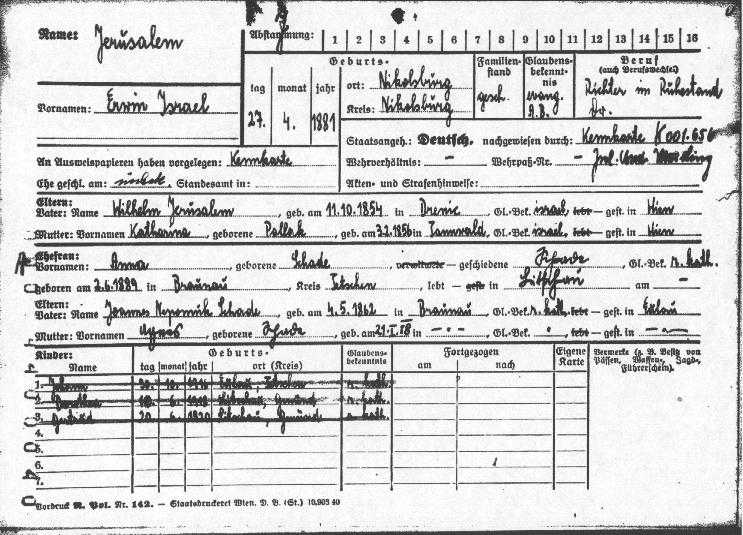 Name: Jerusalem
Abstammung: 1 2 3 4 5 6 7 8 9 10 11 12 13 14 15 16
Geburts- Familienstand Glaubensbekenntnis Beruf (auch Berufswechsel)
tag monat jahr ort: Nikolsburg gesch. evang. A.B. Richter im Ruhestand
Vornamen: Erwin Israel 27. 4. 1881 Kreis: Nikolsburg Dr.
Staatsangeh.: Deutsch. nachgewiesen durch: Kennkarte K 001.656
An Ausweispapieren haben vorgelegen: Kennkarte Wehrverhältnis: – Wehrpaß-Nr. –
Ehe geschl. am: unbek. Standesamt in: Akten- und Strafenhinweise:
Eltern:
Vater: Name Wilhelm Jerusalem, geb. am 11.10.1854 in Drenic, Gl.-Bek. israel., lebt – gest. in Wien
Mutter: Vornamen Katharina, geborene Pollak, geb. am 3.2.1856 in Tannwald, Gl.-Bek. israel., lebt – gest. in Wien
Ehefrau:
Vornamen: Anna geborene Schade, verwitwete – geschiedene Gl.-Bek. r. kath.
geboren am 2.6.1889, in Braunau, Kreis Tetschen, lebt – gestb. in Litschau am –
Eltern:
Vater: Name Joannes Nepomuk Schade, geb. am 4.5.1862 in Braunau, Gl.-Bek. r. kath., lebt – gest. in Eulau
Mutter: Vornamen Agnes, geborene geb. am in – · – Gl.-Bek. lebt – gest. in
Kinder: Geburts- Glaubensbekenntnis Fortgezogen Eigene Karte Vermerke (z. B. Besitz von Pässen, Waffen-, Jagd-, Führerschein)
Name tag monat jahr ort (Kreis) am nach
1. r. kath.
2. Dorothea r. kath.
3. Gertrud 20. 6. 1920 Litschau, Gmünd r. kath.
4.
5.
6.
7.
Vordruck R. Pol. Nr. 142. – Staatsdruckerei Wien. D. B. (St.) 10.903 40